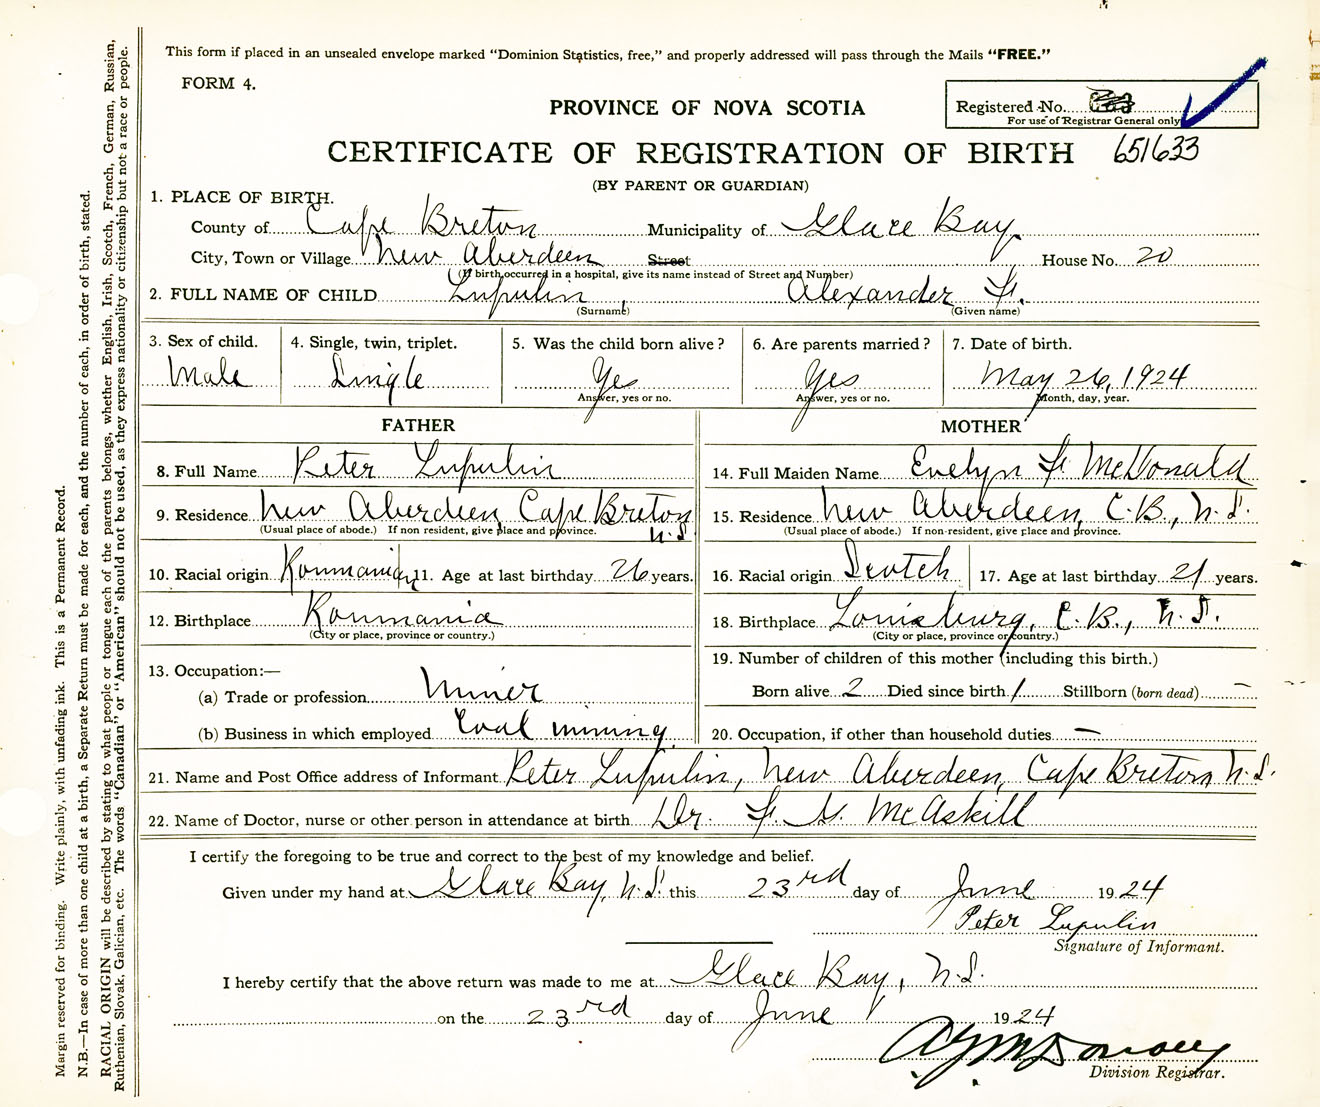 This form if placed in an unsealed envelope marked “Dominion Statistics, free,” and properly addressed will pass through the Mails “FREE.”
FORM 4.
PROVINCE OF NOVA SCOTIA
Registered No.
For use of Registrar General only
CERTIFICATE OF REGISTRATION OF BIRTH 651633
(BY PARENT OR GUARDIAN)
1. PLACE OF BIRTH.
County of Cape Breton Municipality of Glace Bay
City, Town or Village New Aberdeen Street House No. 20
(If birth occurred in a hospital, give its name instead of Street and Number)
2. FULL NAME OF CHILD Lupulin, Alexander F.
(Surname) (Given name)
3. Sex of child. 4. Single, twin, triplet. 5. Was the child born alive? 6. Are parents married? 7. Date of birth.
Male Single Yes Yes May 26, 1924
Answer, yes or no. Answer, yes or no. Month, day, year.
FATHER MOTHER
8. Full Name Peter Lupulin 14. Full Maiden Name Evelyn F. McDonald
9. Residence New Aberdeen, Cape Breton N.S. 15. Residence New Aberdeen, C.B., N.S.
(Usual place of abode.) If non resident, give place and province. (Usual place of abode.) If non-resident, give place and province.
10. Racial origin Roumanian 11. Age at last birthday 26 years. 16. Racial origin Scotch 17. Age at last birthday 21 years.
12. Birthplace Roumania 18. Birthplace Louisburg, C.B., N.S.
(City or place, province or country.) (City or place, province or country.)
13. Occupation:— 19. Number of children of this mother (including this birth.)
(a) Trade or profession Miner Born alive 2 Died since birth 1 Stillborn (born dead) —
(b) Business in which employed Coal mining 20. Occupation, if other than household duties —
21. Name and Post Office address of Informant Peter Lupulin, New Aberdeen, Cape Breton, N.S.
22. Name of Doctor, nurse or other person in attendance at birth Dr. McAskill
I certify the foregoing to be true and correct to the best of my knowledge and belief.
Given under my hand at Glace Bay, N.S. this 23rd day of June 1924
Peter Lupulin
Signature of Informant.
I hereby certify that the above return was made to me at Glace Bay, N.S.
on the 23rd day of June 1924
Division Registrar.
Margin reserved for binding. Write plainly, with unfading ink. This is a Permanent Record.
N.B.—In case of more than one child at a birth, a Separate Return must be made for each, and the number of each, in order of birth, stated.
RACIAL ORIGIN will be described by stating to what people or tongue each of the parents belongs, whether English, Irish, Scotch, French, German, Russian,
Ruthenian, Slovak, Galician, etc. The words “Canadian” or “American” should not be used, as they express nationality or citizenship but not a race or people.